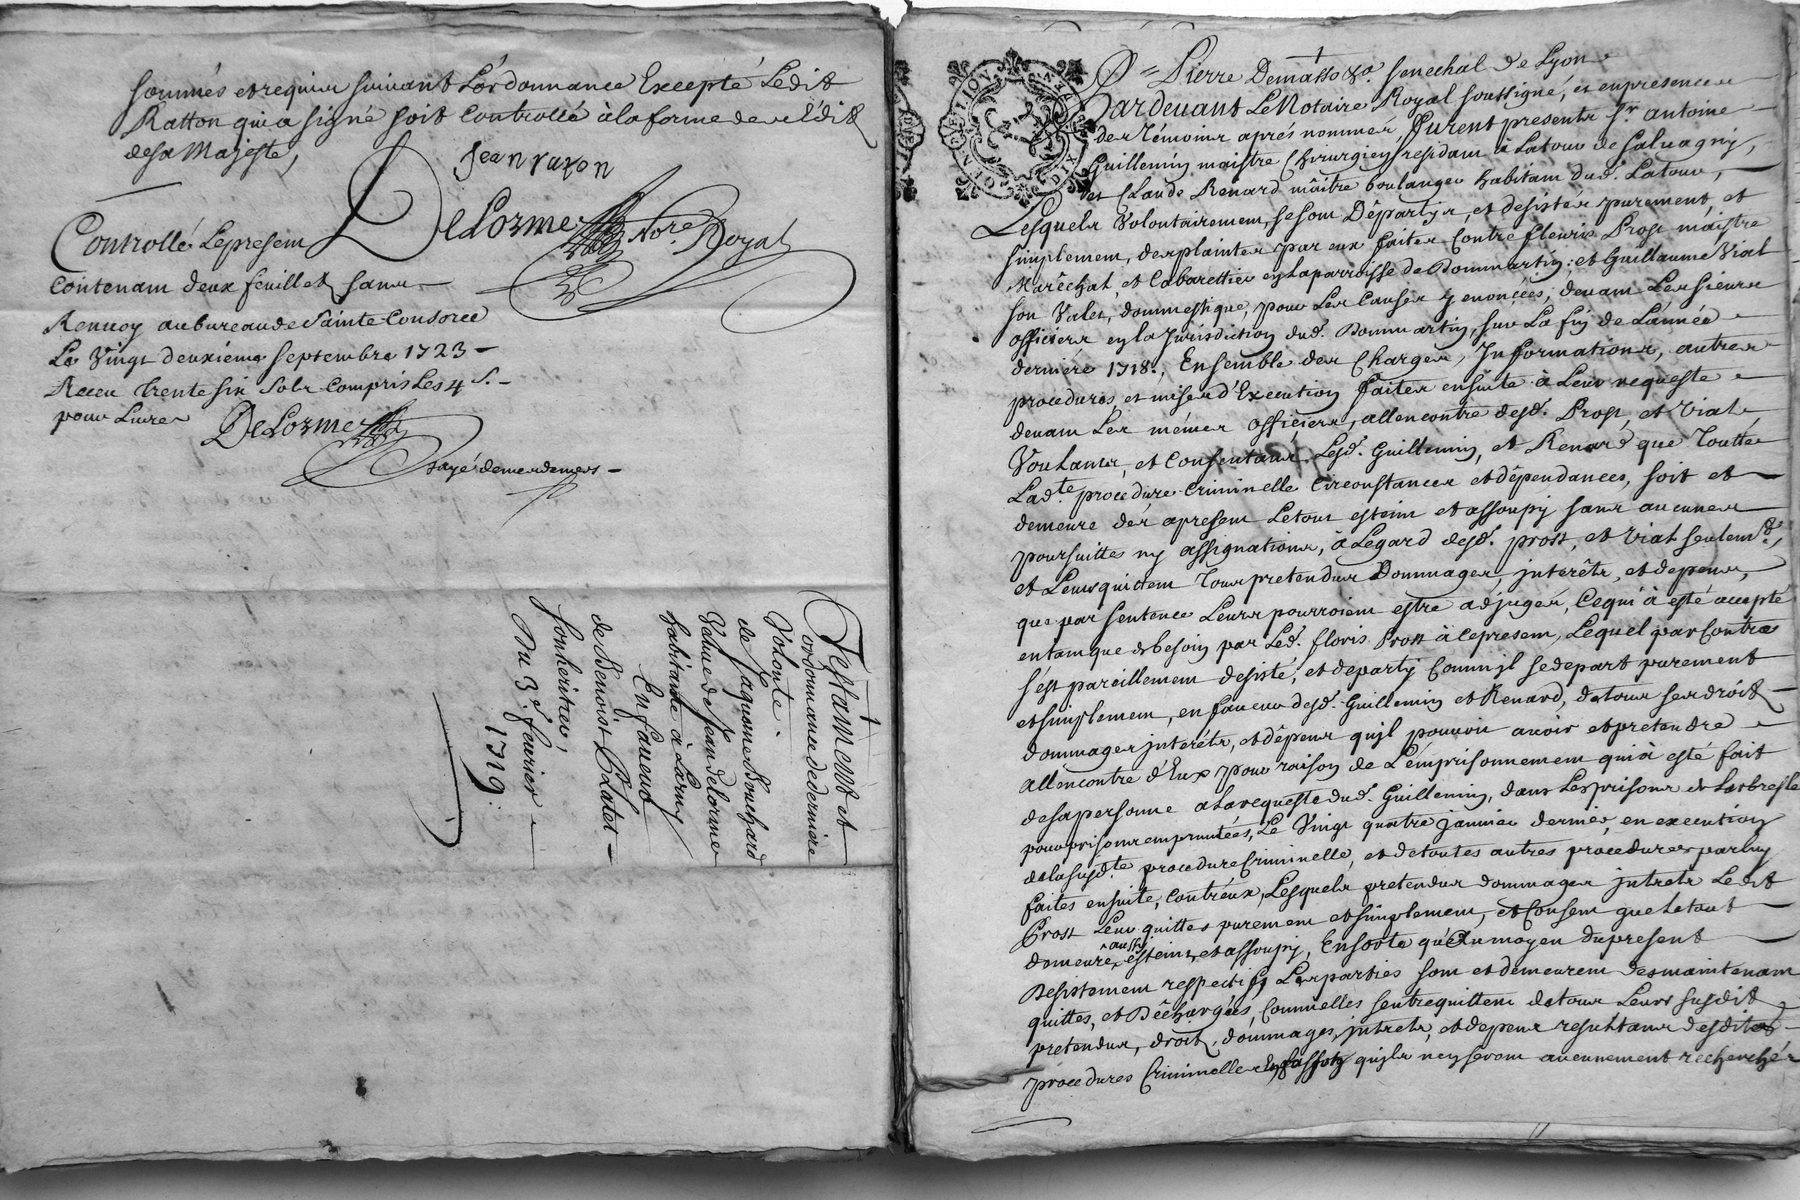 sommés et requis suivant L'ordonnance Excepté Ledit
Ratton qui a signé soit Controllé à la forme de L'édit
de sa Majesté,
Jean raton
DeLorme No.re Royal
Controllé Lepresent
Contenam deux feuillets sans
Renvoy au bureau de Sainte Consorce
Le Vingt deuxieme Septembre 1723
Receu trente six Sols Compris Les 4 s.
pour Livres
DeLorme
Testament et
ordonnance de derniere
Volonté
de Jaquême Bouchard
Vefve de Jean delorme
habitante à Larny
En faveur
de Benoist Clatel
son heritier,
Du 3.e fevrier
1719.
COLLON GENER DE LION DIX D
Pierre Demasso &a. Senechal de Lyon
Pardevant Le Notaire Royal soussigné, et en presence
des Témoins aprés nommés, furent presents Sr. antoine
Guillemin maistre Chirurgien residant à Latour de Salvagny,
et Claude Renard maître boulanger habitant dud. Latour,
Lesquels Volontairement, se sont Départys, et desistés purement, et
simplement, des plaintes par eux faites Contre fleuris Prost maistre
Maréchal, et Cabarettier en la parroisse de Dommartin; et Guillaume Vial
son Valet, dommestique, pour Les Causes y enoncées, devant Les sieurs
officiers en la Jurisdiction dud. Dommartin, sur La fin de L'année
derniére 1718., Ensemble des Charges, Informations, autres
procedures et mises d'Execution faites ensuite à Leur requeste
devant Les mémes officiers, allencontre desd. Prost, et Vial
Voulants, et Consentants Lesd. Guillemin, et Renard que Toutte
Lad.te procedure Criminelle Circonstances et dépendances, soit et
demeure dés apresent Letout esteint et assoupy sans aucunes
poursuittes ny assignations, à Legard desd. prost, et Vial seulem.t,
et Leurs quittent Tous pretendus Dommages, interêts, et depens,
que par sentence Leurs pourroient estre adjugés, Cequi à esté accepté
entant que de besoin par Led. floris Prost à cepresent, Lequel par Contre
s'est pareillement desisté, et departy Comm'il se depart purement
et simplement, en faveur desd. Guillemin et Renard, de tous ses droits
dommages interêts, et dépens qu'il pouvoit avoir et pretendre
allencontre d'Eux pour raison de L'emprisonnement qui à esté fait
de sa personne à la requeste dud. Guillemin, dans Les prisons de Larbresle
pour prisons empruntées, Le Vingt quatre janvier dernier, en execution
de la susd.te procedure Criminelle, et de toutes autres procedures par luy
faites ensuite, contr'eux, Lesquels pretendus dommages interets Ledit
Prost Leur quittes purement et simplement, et Consent que Le tout
demeure aussy esteint, et assoupy, Ensorte qu'Au moyen du present
Desistement respectif Les parties sont et demeurent des maintenant
quittes, et Déchargées, Comm'elles s'entrequittent de tous Leurs susdits
pretendus, droits, dommages, interets, et depens resultants desdites
procedures Criminelles qu'ils n'en seront aucunement recherchés